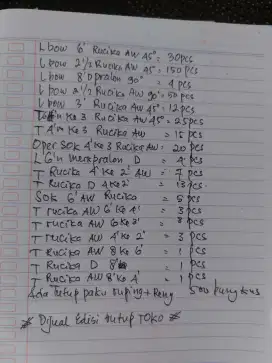 Lbow 6" Rucika AW 45° = 30 pcs
Lbow 2 1/2 Rucika AW 45° = 150 pcs
Lbow 8" D pralon 90° = 4 pcs
Lbow 2 1/2 Rucika AW 90° = 50 pcs
Lbow 3" Rucika AW 45° = 12 pcs
ke 3 Rucika AW 45° = 25 pcs
T 4" ke 3 Rucika AW = 15 pcs
Oper Sok 4" ke 3 Rucika AW = 20 pcs
L 6" in D = 4 pcs
T Rucika 4" ke 2" AW = 7 pcs
T Rucika D 4 ke 2" = 13 pcs
Sok 6" AW Rucika = 5 pcs
T rucika AW 6" ke 4" = 3 pcs
T rucika AW 6 ke 3" = 8 pcs
T rucika AW 4" ke 2" = 3 pcs
T Rucika AW 8" ke 6" = 1 pcs
T Rucika D 8" = 1 pcs
T Rucika AW 8" ke 4" = 1 pcs
Ada tutup paku + Reng 500 bungkus
Dijual Edisi tutup TOKO